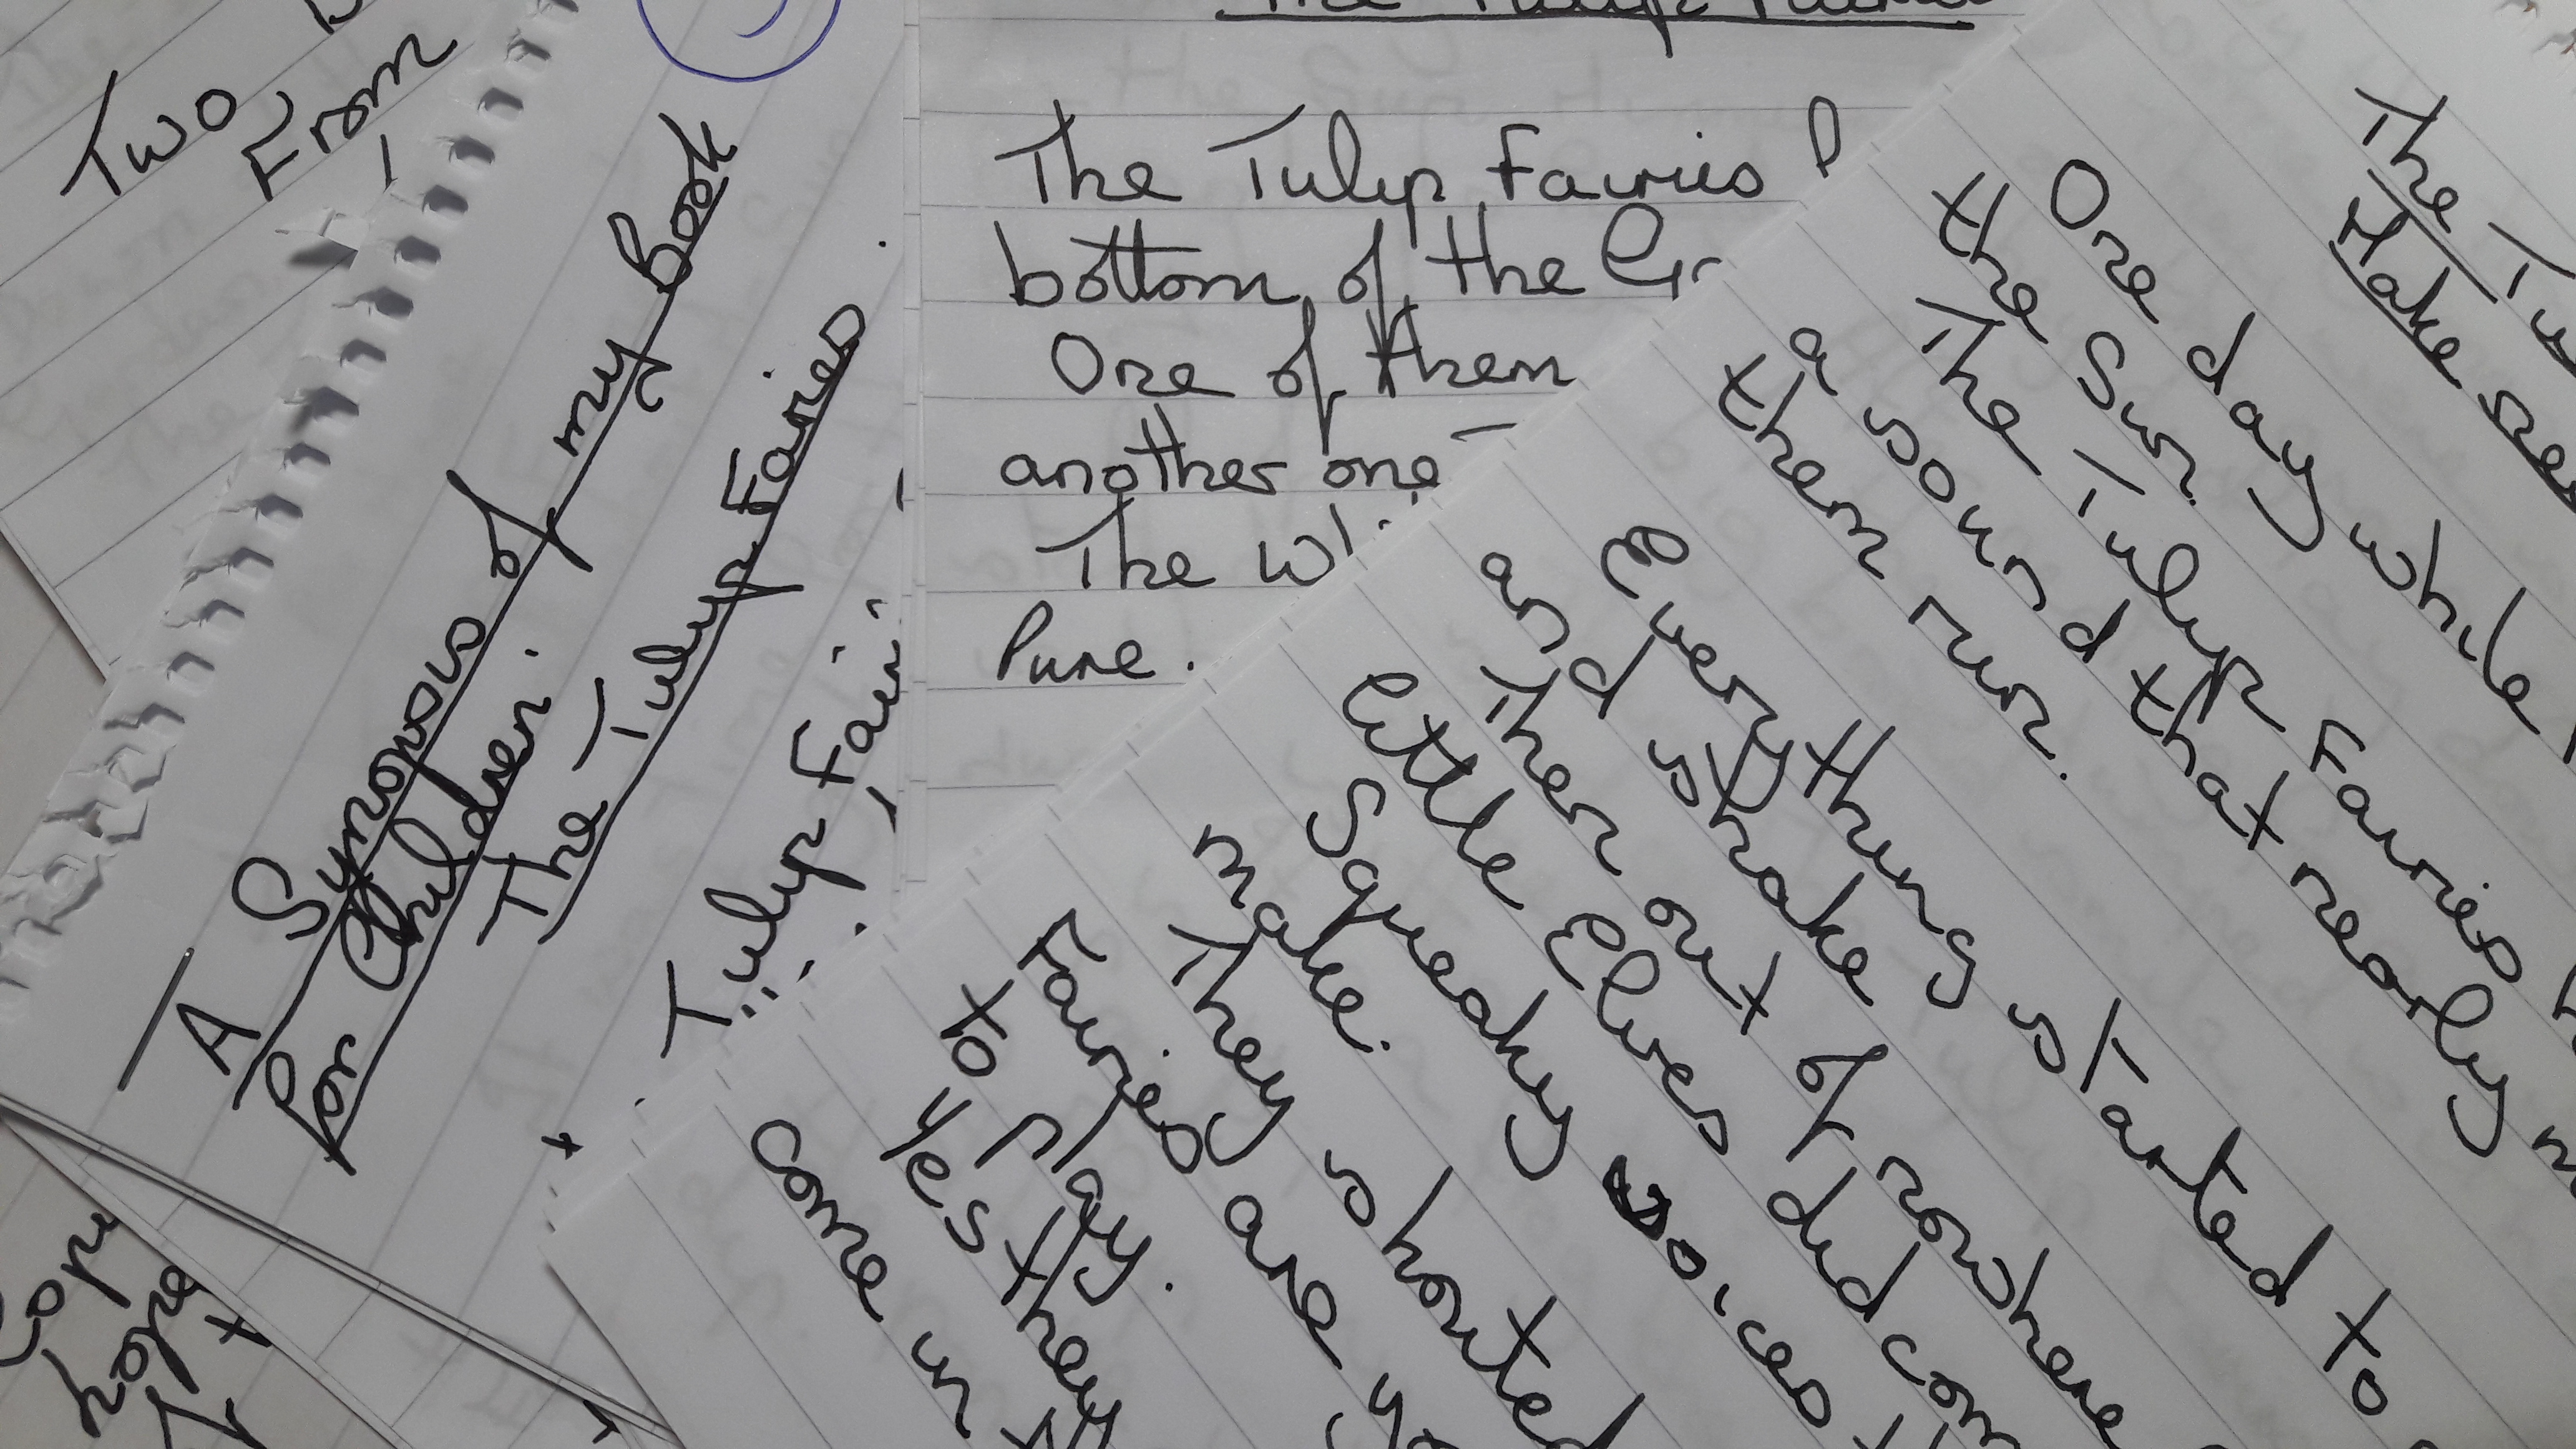 Two
From
A Synopsis of my Book
for Children.
The Tulip Fairies
Tulip
The Tulip Fairies
bottom of the
One of them
another one
The
Pure.
The
Make
One day while
the Sun.
The Tulip Fairies
a sound that nearly
them run.
Everything started to
and shake
Then out of nowhere
little Elves did
Squeaky voices
make.
They shouted
Fairies are
to play.
Yes they
come in